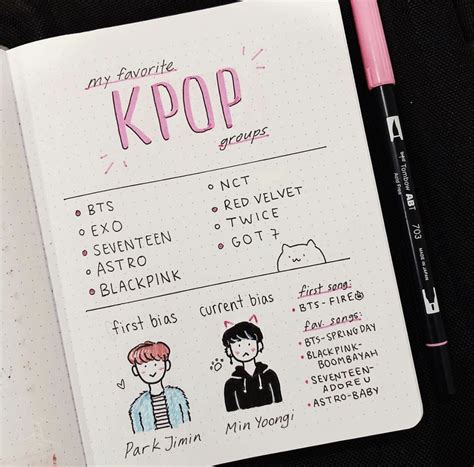 my favorite
KPOP
groups
BTS
EXO
SEVENTEEN
ASTRO
BLACKPINK
NCT
RED VELVET
TWICE
GOT 7
first bias
Park Jimin
current bias
Min Yoongi
first song:
BTS-FIRE
fav. songs:
BTS-SPRING DAY
BLACKPINK-
BOOMBAYAH
SEVENTEEN-
ADORE U
ASTRO-BABY
Tombow ABT
Acid Free
703
MADE IN JAPAN